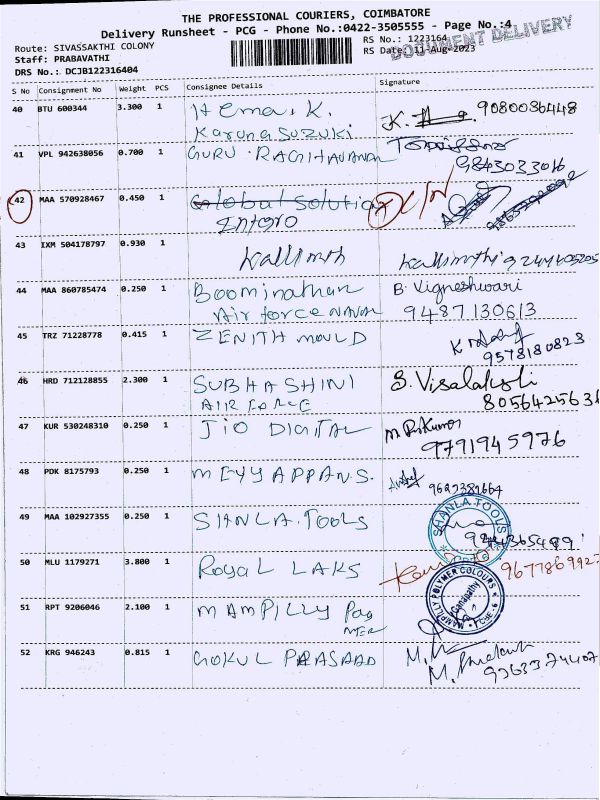 THE PROFESSIONAL COURIERS, COIMBATORE
Delivery Runsheet - PCG - Phone No.:0422-3505555 - Page No.:4
DOCUMENT DELIVERY
Route: SIVASSAKTHI COLONY
RS No.: 1223164
Staff: PRABAVATHI
RS Date: 11-Aug-2023
DRS No.: DCJB122316404
S No Consignment No Weight PCS Consignee Details Signature
40 BTU 600344 3.300 1 Hema. K. 9080036448
Karuna SUZUKI
41 VPL 942638056 0.700 1 GURU. RAGHAVANDR
9843033016
42 MAA 570928467 0.450 1 Global Solution
Integro
43 IXM 504178797 0.930 1 Kallimth Kallimthi
44 MAA 860785474 0.250 1 Boominathan B. Vigneshwari
Air force NAVAL 9487130613
45 TRZ 71228778 0.415 1 ZENITH MOULD
9578180823
46 HRD 712128855 2.300 1 SUBHASHINI S. Visalakshi
AIR FORCE 8056425636
47 KUR 530248310 0.250 1 JIO DIGITAL
9791945976
48 PDK 8175793 0.250 1 MEYYAPPAN.S.
49 MAA 102927355 0.250 1 SHNLA.TOOLS SHANLA TOOLS
50 MLU 1179271 3.800 1 ROYAL LAKS
51 RPT 9206046 2.100 1 MAMPILLY Poly
MER
MAMPILLY POLYMER COLOURS
Ganapathy
52 KRG 946243 0.815 1 GOKUL PRASAAD